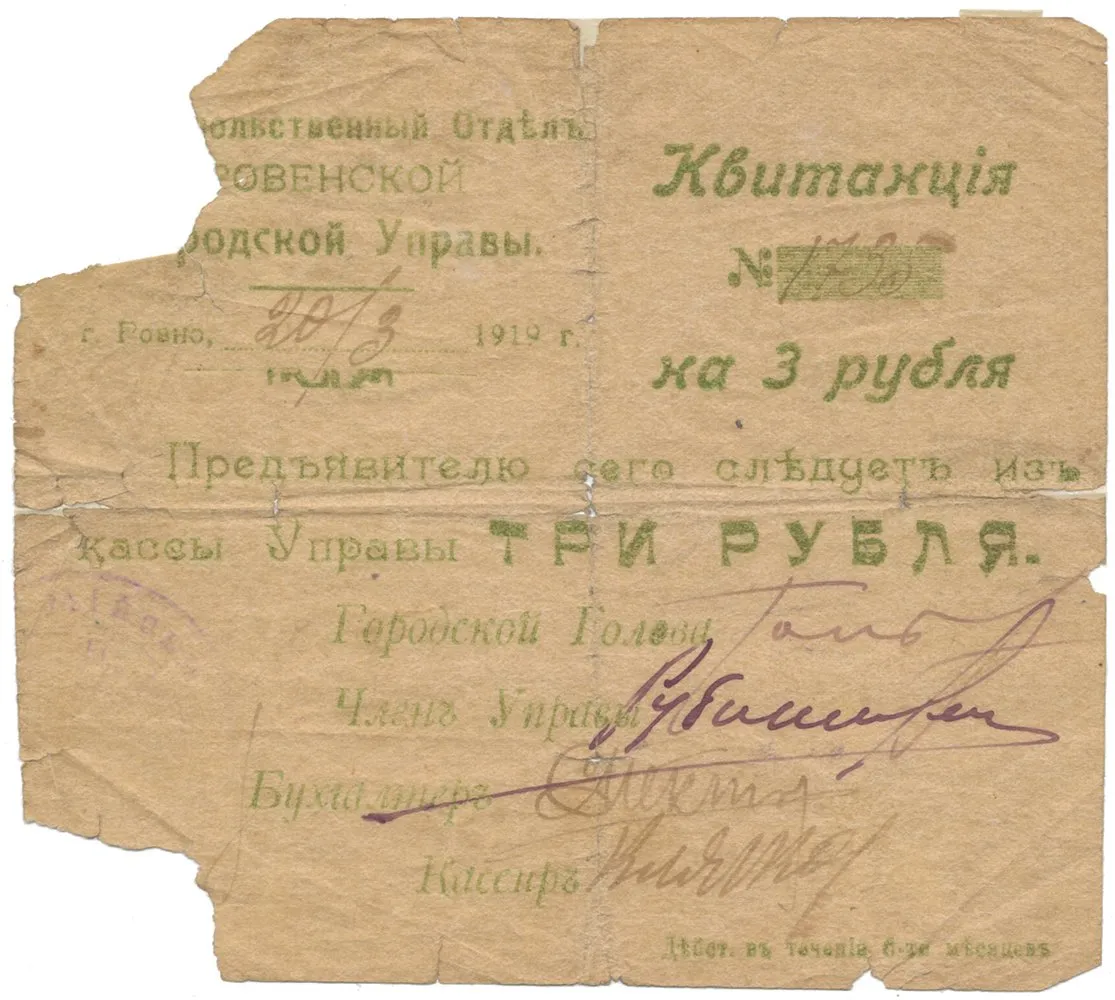 ольственный Отдѣлъ
РОВЕНСКОЙ
родской Управы.
г. Ровно, 20/3 1919 г.
Квитанція
№ 1735
на 3 рубля
Предъявителю сего слѣдуетъ изъ
кассы Управы ТРИ РУБЛЯ.
Городской Голова
Членъ Управы
Бухгалтеръ
Кассиръ
Дѣйст. въ теченіе 6-ти мѣсяцевъ